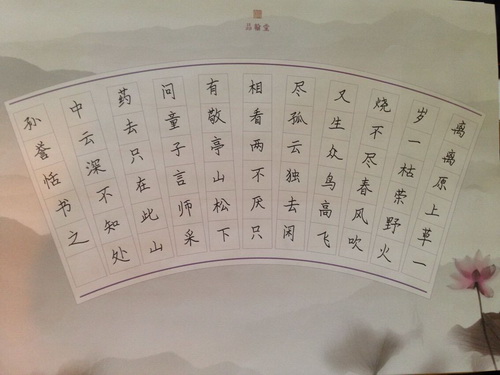 离离原上草一
岁一枯荣野火
烧不尽春风吹
又生众鸟高飞
尽孤云独去闲
相看两不厌只
有敬亭山松下
问童子言师采
药去只在此山
中云深不知处
孙誉恬书之